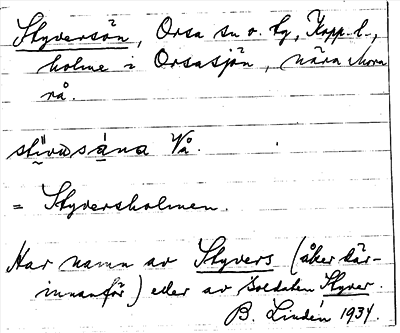 Styversön, Orsa sn o. by, Kopp. l.,
holme i Orsasjön, nära Mora
rå.
Vå.
= Styversholmen.
Har namn av Styvers (åker där-
innanför) eller av soldaten Styver.
B. Lindén 1934.